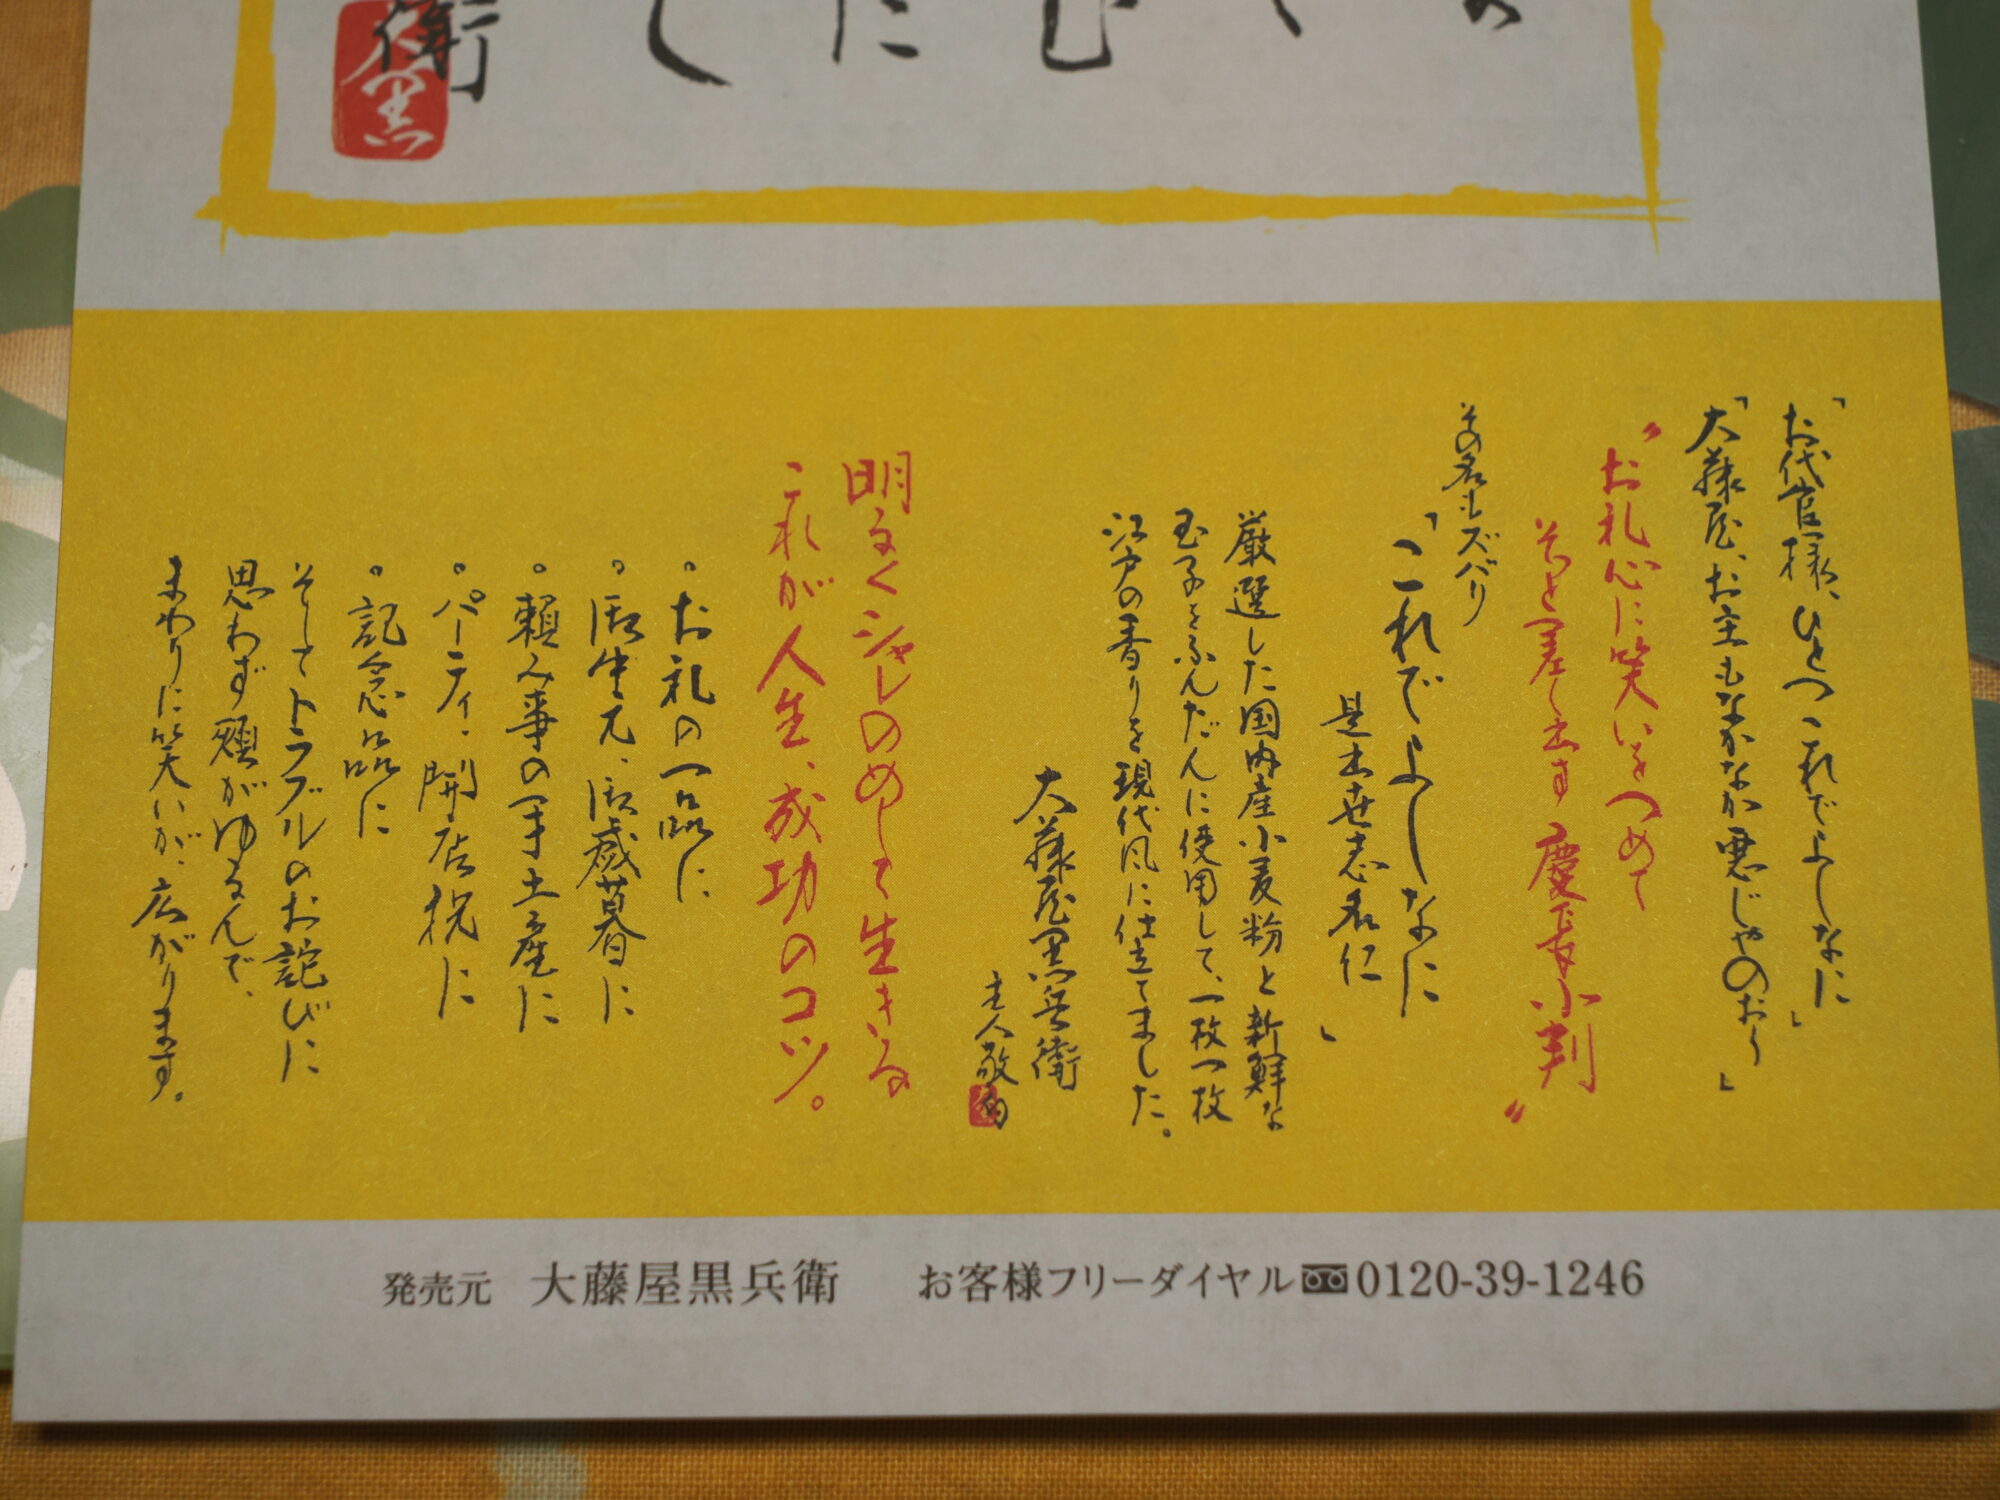 「お代官様、ひとつこれでよしなに」
「大藤屋、お主もなかなか悪じゃのお〜」
"お礼心に笑いをつめて
そっと差し出す慶長小判"
その名もズバリ
「これでよしなに
是出世志名仁」
厳選した国内産小麦粉と新鮮な
玉子をふんだんに使用して、一枚一枚
江戸の香りを現代風に仕立てました。
大藤屋黒兵衛
主人敬白
明るくシャレのめして生きる
これが人生、成功のコツ。
・お礼の一品に
・御中元、御歳暮に
・頼み事の手土産に
・パーティ、開店祝に
・記念品に
そしてトラブルのお詫びに
思わず頬がゆるんで、
まわりに笑いが、広がります。
発売元 大藤屋黒兵衛 お客様フリーダイヤル0120-39-1246